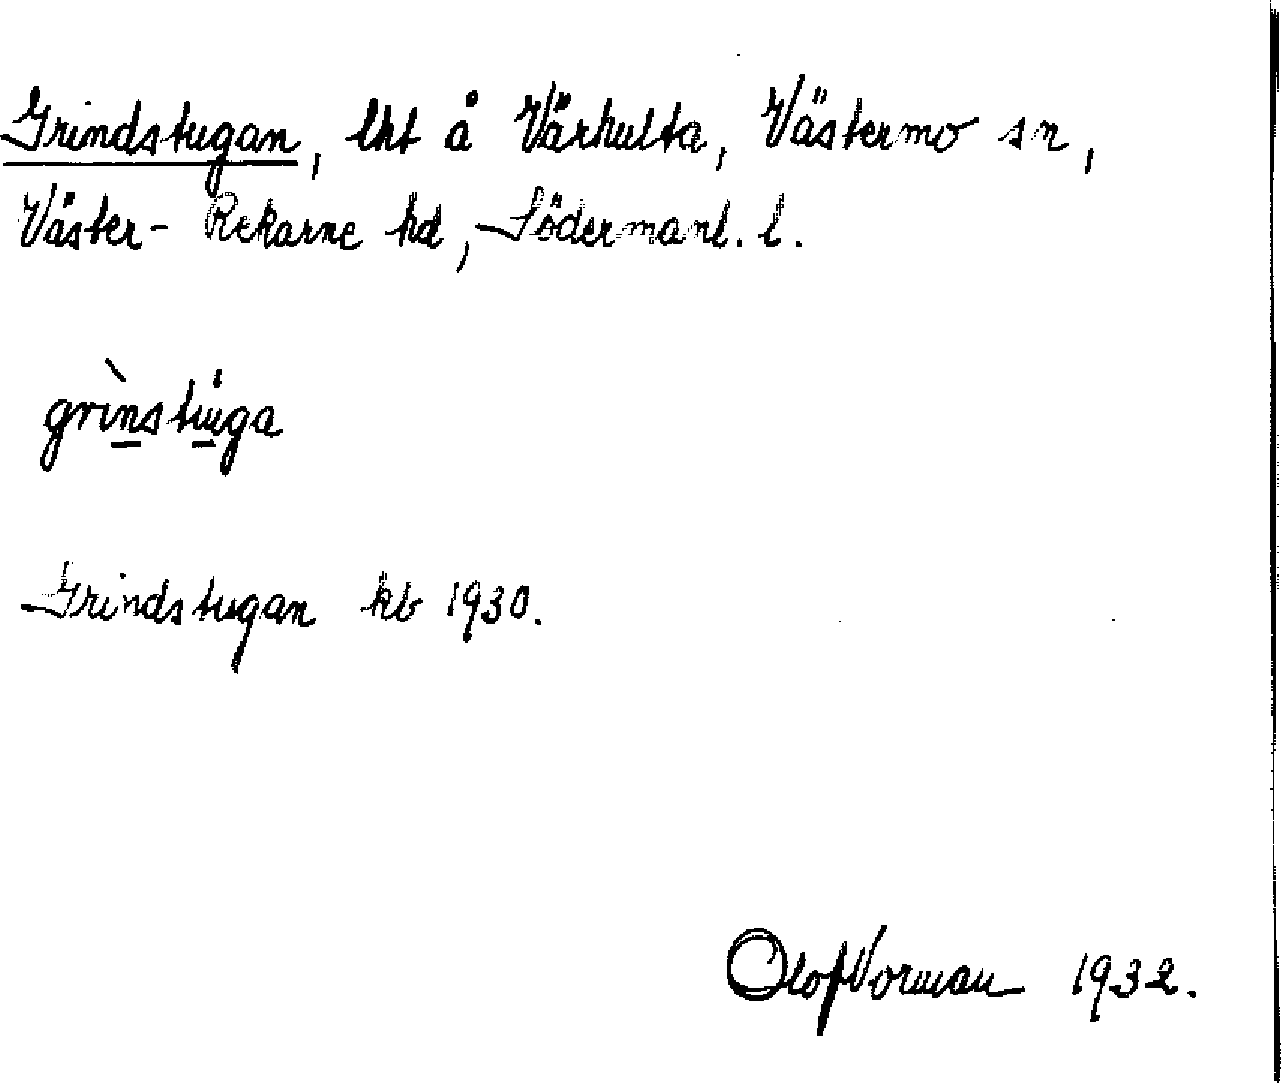 Grindstugan, lht å Värhulta, Västermo sn,
Väster-Rekarne hd, Södermanl. l.
grìnstuga
Grindstugan kb 1930.
Olof Vorman 1932.